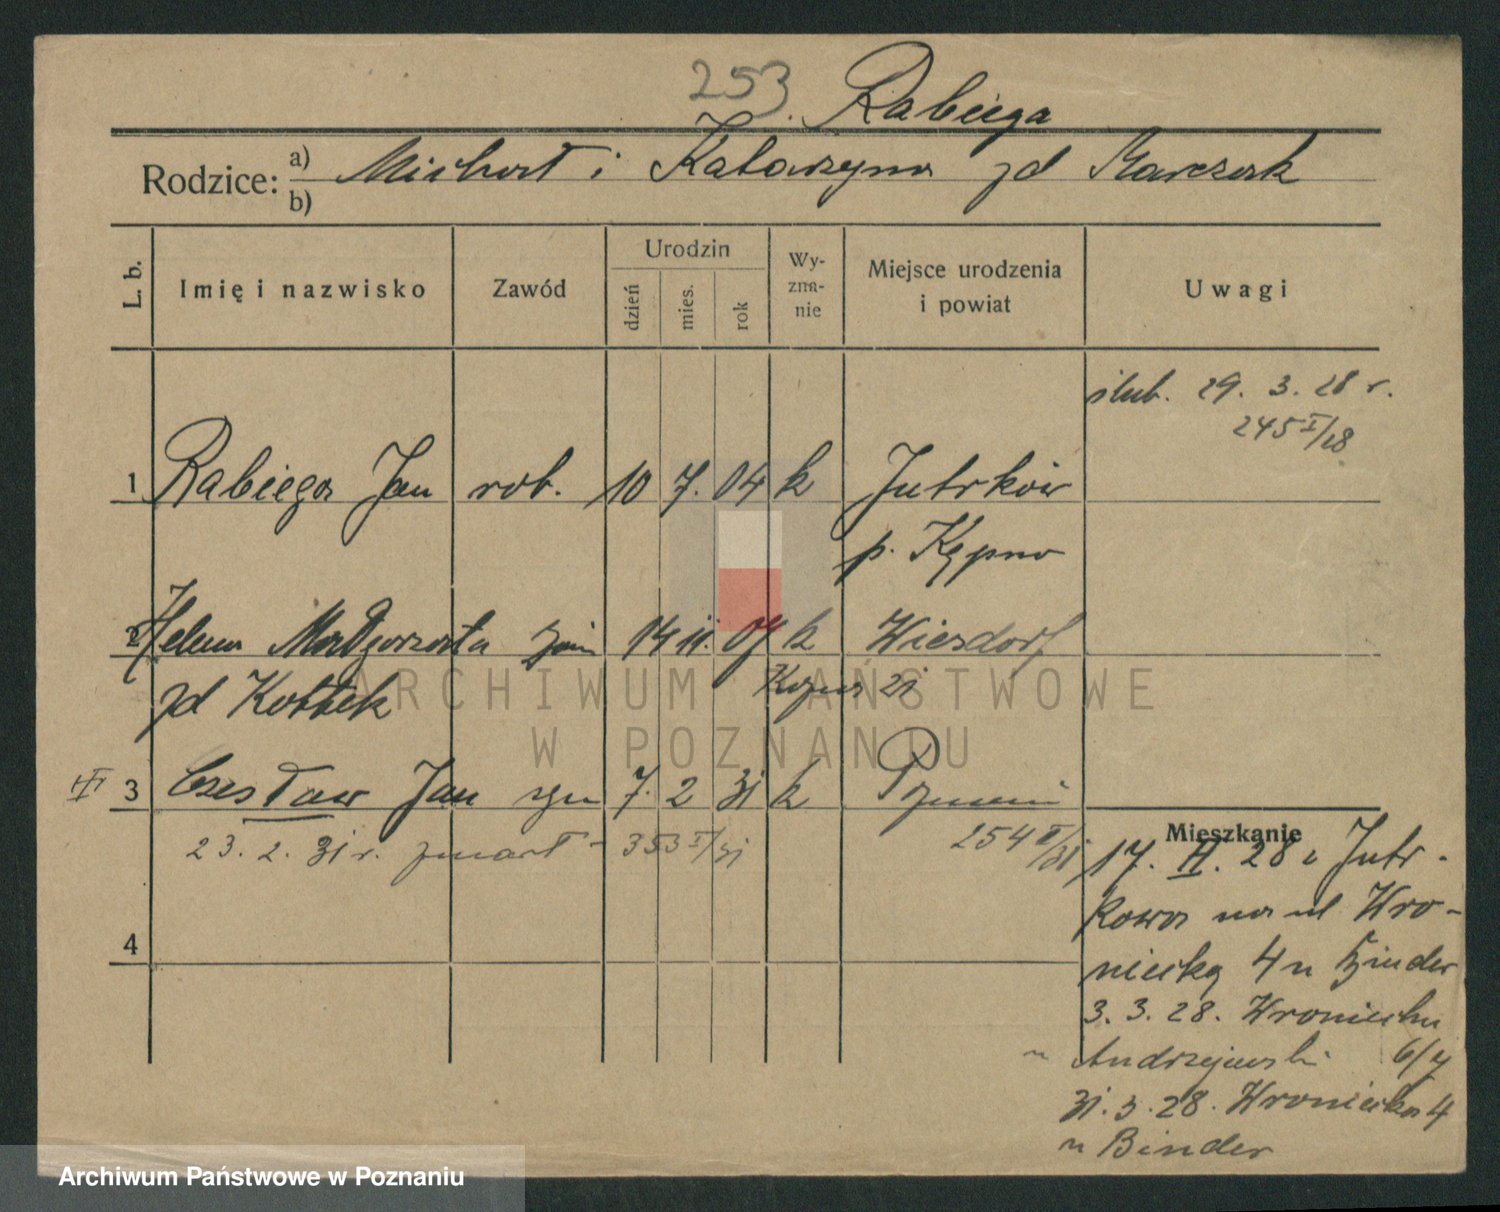 253. Rabiega
Rodzice: a) Michał i Katarzyna zd Marczak
b)
L. b. Imię i nazwisko Zawód Urodzin dzień mies. rok Wy-zna-nie Miejsce urodzenia i powiat Uwagi
ślub. 29. 3. 28 r.
245 I/28
1 Rabiega Jan rob. 10 7. 04 k Jutrków
p. Kępno
2 Helena Małgorzata 14 11. 07 k Wiesdorf
zd Kottek 21
III 3 Czesław Jan syn 7. 2 31 k Poznań
23. 2. 31 r. zmarł - 353 I/31 254 II/31
4
Mieszkanie
17. II. 28 z Jutr-
kowa na ul Wro-
niecką 4 u Binder
3. 3. 28. Wroniecka
u Andrzejewski 6/7
31. 3. 28. Wroniecka 4
u Binder
ARCHIWUM PAŃSTWOWE
W POZNANIU
Archiwum Państwowe w Poznaniu